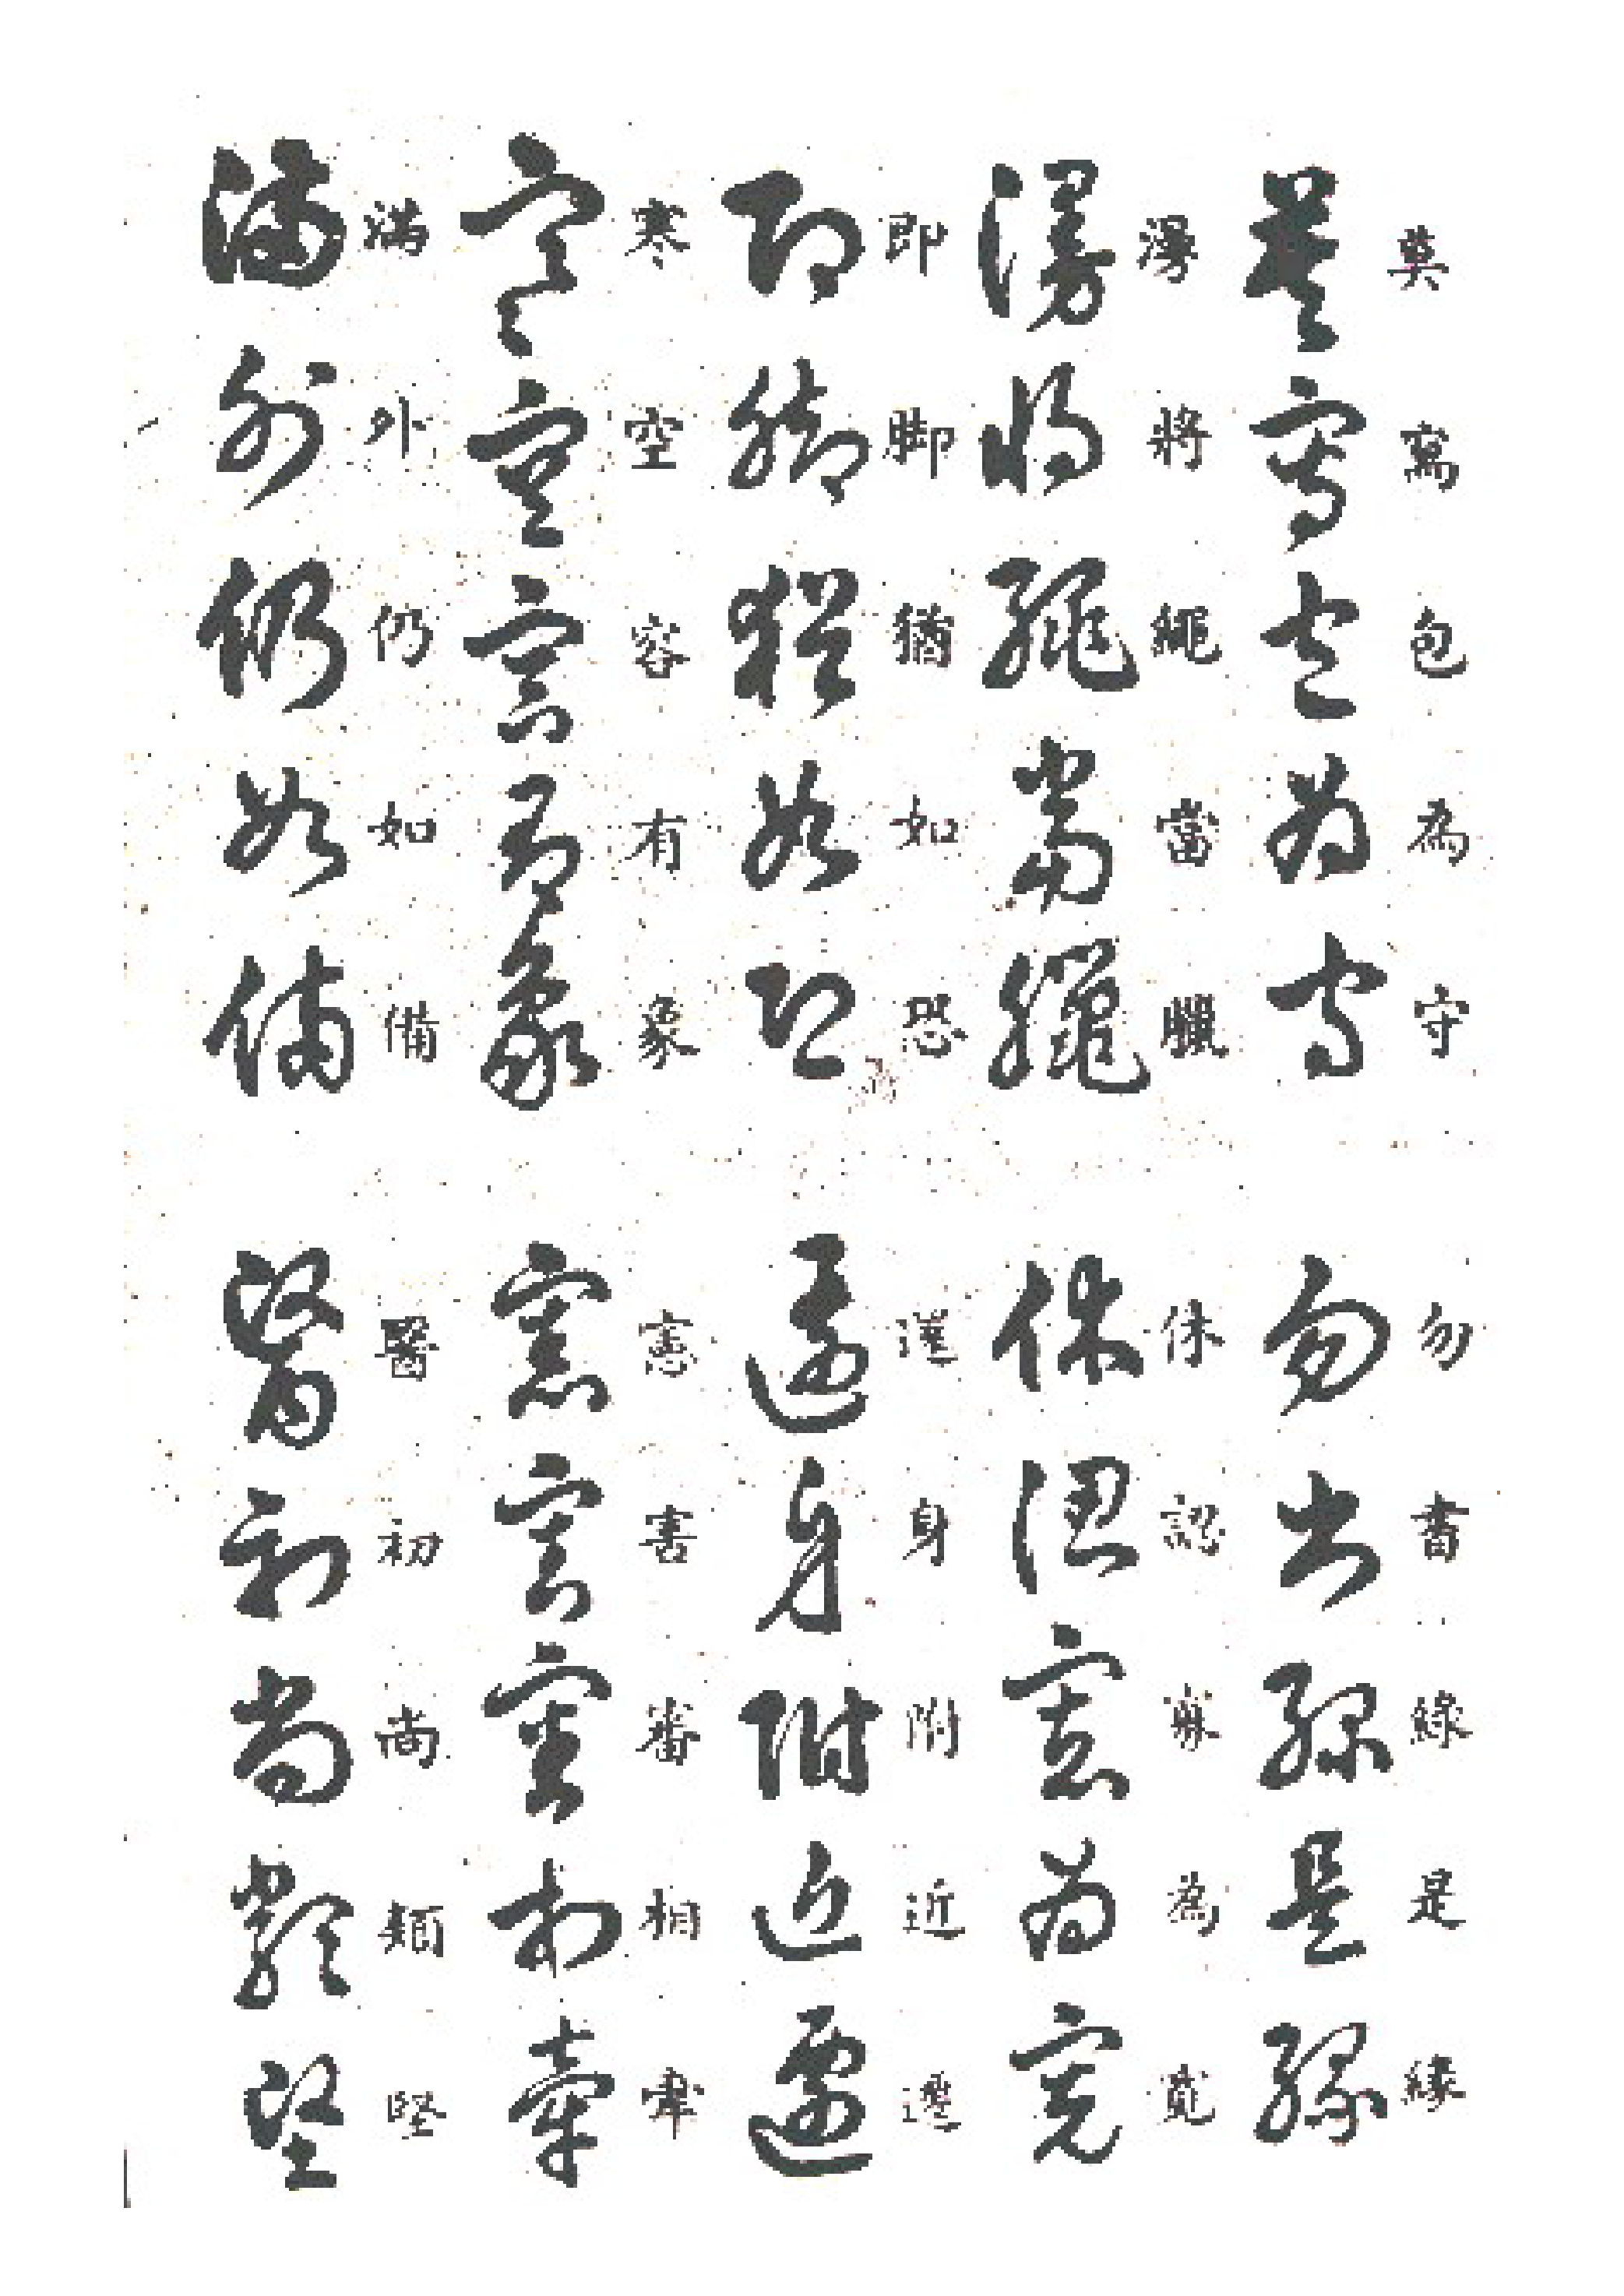 莫寫包為守 勿書綠是緣
漫將繩當臘 休認寡為寬
即脚猶如恐 還身附近遷
寒空容有象 憲害審相牽
滿外仍如備 醫初尚類堅